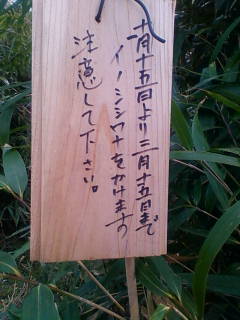 十一月十五日より二月十五日まで
イノシシワナをかけます
注意して下さい。